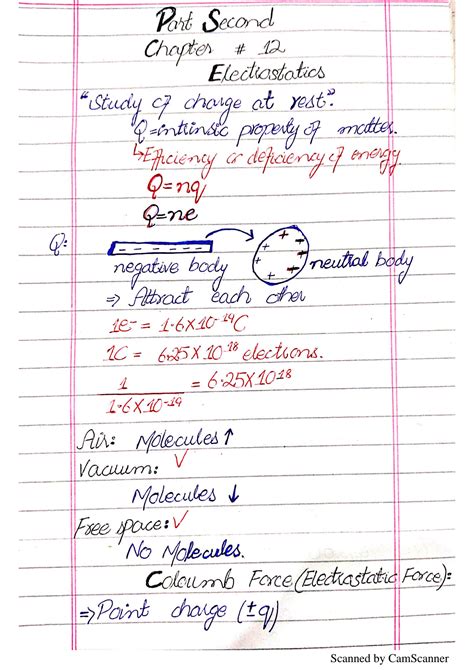 Part Second
Chapter # 12
Electrostatics
"Study of charge at rest".
Q=intrinsic property of matter.
↳Efficiency or deficiency of energy
Q=nq
Q=ne
Q:
- - - - - - + + + + - - -
negative body neutral body
⇒ Attract each other
1e⁻ = 1.6X10⁻¹⁹C
1C = 6.25X10¹⁸ electrons.
1 / 1.6X10⁻¹⁹ = 6.25X10¹⁸
Air: Molecules ↑
Vacuum: ✓
Molecules ↓
Free space: ✓
No Molecules.
Coloumb Force (Electrostatic Force):-
⇒Point charge (±q)
Scanned by CamScanner